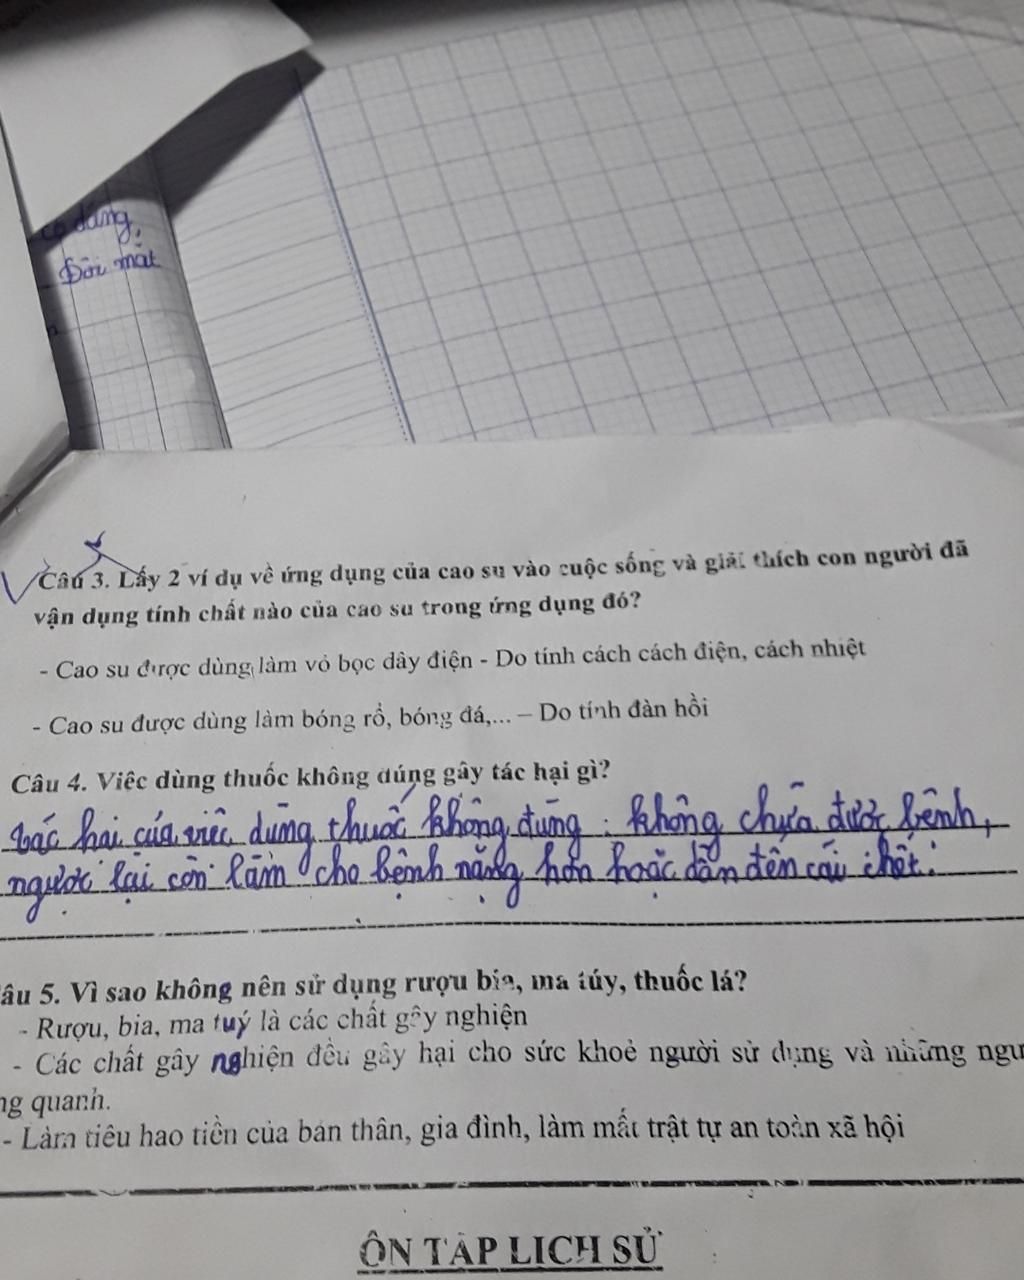 dáng,
Đôi mắt
Câu 3. Lấy 2 ví dụ về ứng dụng của cao su vào cuộc sống và giải thích con người đã
vận dụng tính chất nào của cao su trong ứng dụng đó?
- Cao su được dùng làm vỏ bọc dây điện - Do tính cách cách điện, cách nhiệt
- Cao su được dùng làm bóng rổ, bóng đá,... – Do tính đàn hồi
Câu 4. Viêc dùng thuốc không đúng gây tác hại gì?
tác hại của việc dùng thuốc không đúng : không chữa được bệnh,
ngược lại còn làm cho bệnh nặng hơn hoặc dẫn đến cái chết.
âu 5. Vì sao không nên sử dụng rượu bia, ma túy, thuốc lá?
- Rượu, bia, ma tuý là các chất gây nghiện
- Các chất gây nghiện đều gây hại cho sức khoẻ người sử dụng và những ngư
ng quanh.
- Làm tiêu hao tiền của bản thân, gia đình, làm mất trật tự an toàn xã hội
ÔN TẬP LỊCH SỬ